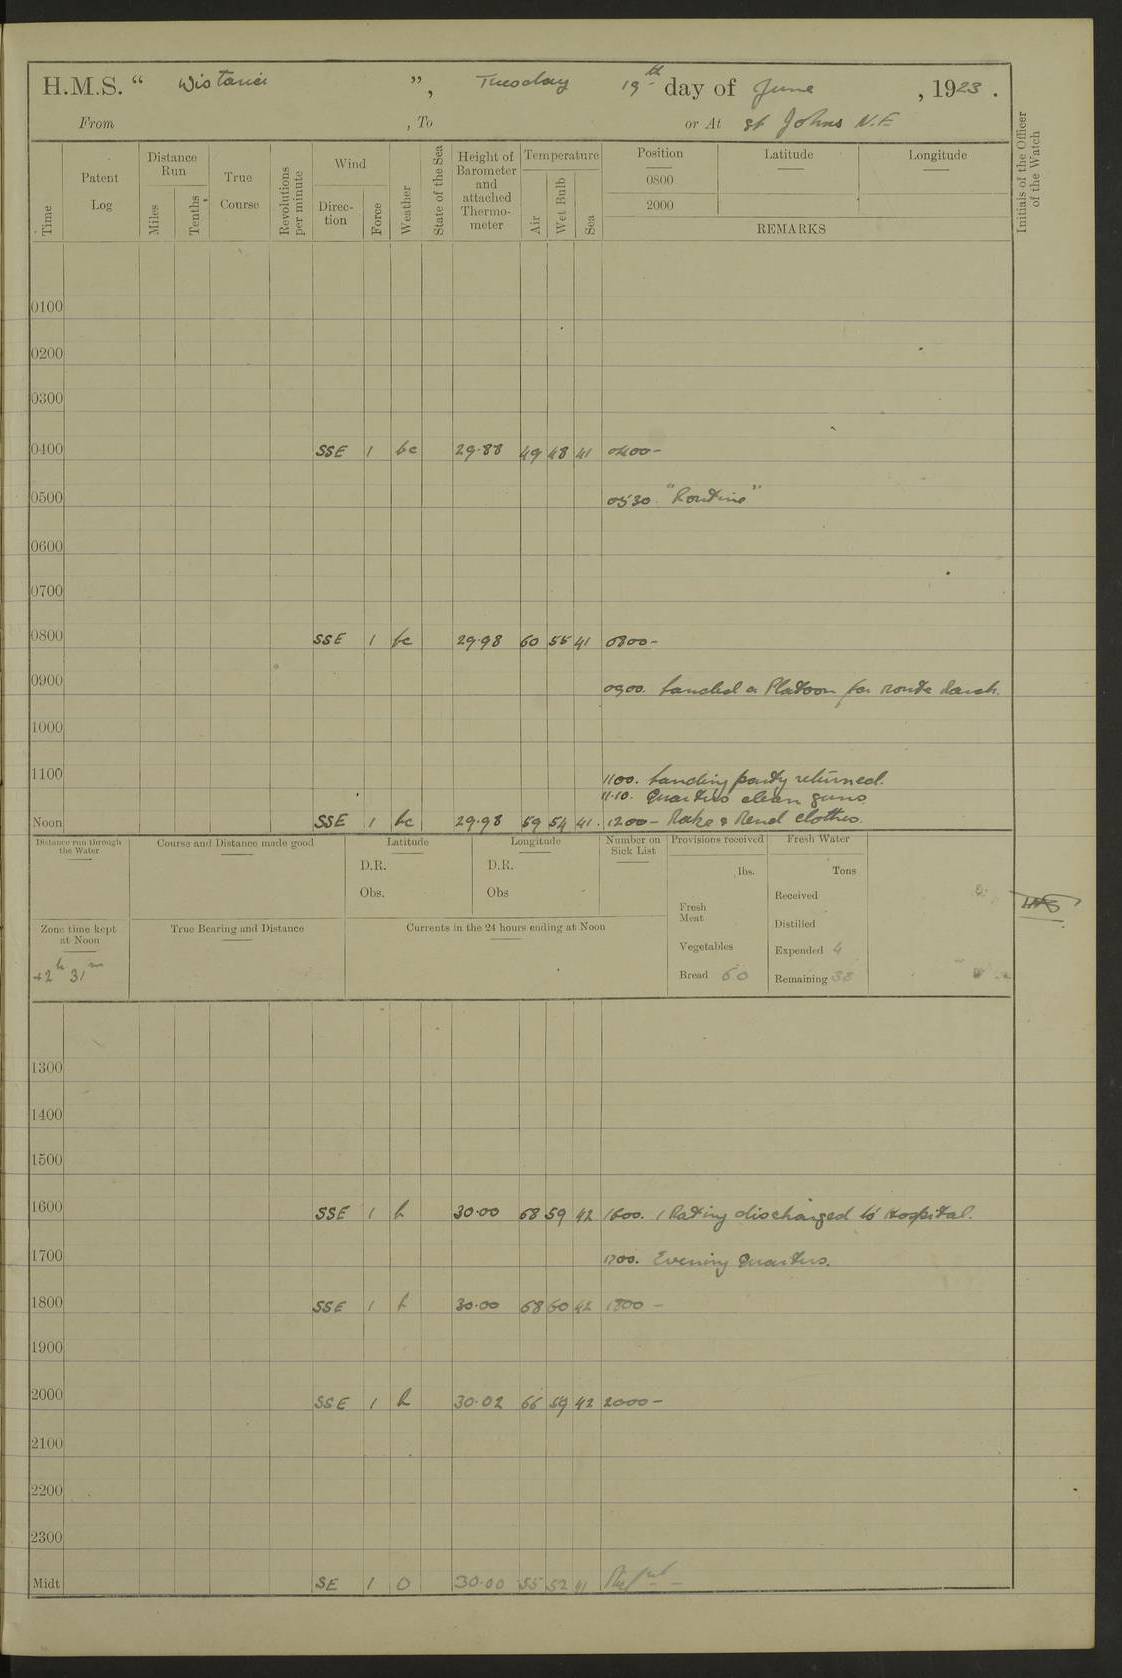 H.M.S. “ Wistaria ”, Tuesday 19th day of June, 1923.
From , To or At St Johns N.F.
Time
Patent Log
Distance Run
Miles
Tenths
True Course
Revolutions per minute
Wind
Direc-tion
Force
Weather
State of the Sea
Height of Barometer and attached Thermo-meter
Temperature
Air
Wet Bulb
Sea
Position
Latitude
Longitude
0800
2000
REMARKS
Initials of the Officer of the Watch
0100
0200
0300
0400 SSE 1 bc 29.88 49 48 41 0400 -
0500 0530 "Routine"
0600
0700
0800 SSE 1 bc 29.98 60 55 41 0800 -
0900 0900. Landed a Platoon for route March.
1000
1100 1100. Landing party returned.
11.10. Quarters clean guns
Noon SSE 1 bc 29.98 59 54 41. 1200 - Make & Mend clothes.
Distance run through the Water
Course and Distance made good
Latitude
D.R.
Obs.
Longitude
D.R.
Obs
Number on Sick List
Provisions received
lbs.
Fresh Meat
Vegetables
Bread 60
Fresh Water
Tons
Received
Distilled
Expended 4
Remaining 38
Zone time kept at Noon
+2h 31m
True Bearing and Distance
Currents in the 24 hours ending at Noon
1300
1400
1500
1600 SSE 1 b 30.00 68 59 42 1600. 1 Rating discharged to Hospital.
1700 1700. Evening Quarters.
1800 SSE 1 b 30.00 68 60 42 1800 -
1900
2000 SSE 1 b 30.02 66 59 42 2000 -
2100
2200
2300
Midt SE 1 O 30.00 55 52 41